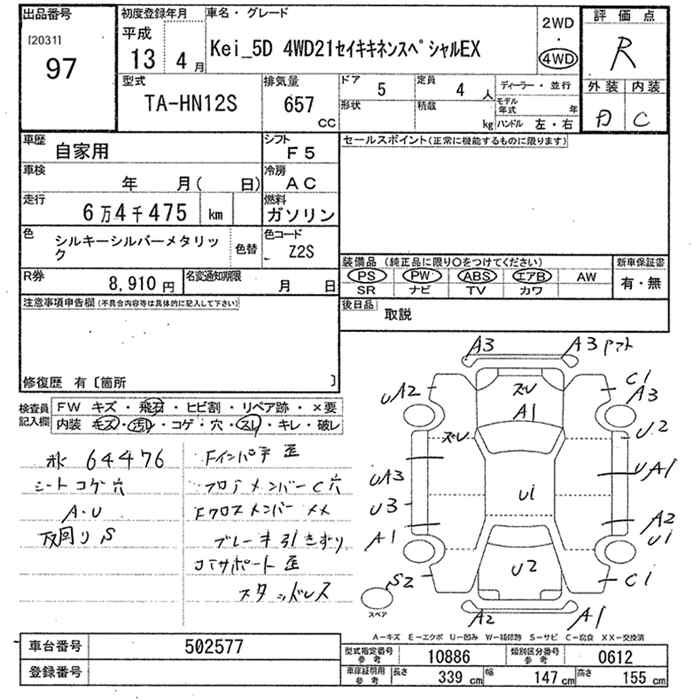 出品番号
[2031]
97
初度登録年月
平成
13 4月
車名・グレード
Kei_5D 4WD21セイキキネンスペシャルEX
2WD
・
4WD
評価点
R
外装 内装
C
型式
TA-HN12S
排気量
657
cc
ドア 5
定員 4人
形状
積載 kg
ディーラー・並行
モデル年式 年
ハンドル 左・右
車歴
自家用
シフト
F5
セールスポイント(正常に機能するものに限ります)
車検
年 月( 日)
冷房
AC
走行
6万4千475 km
燃料
ガソリン
色
シルキーシルバーメタリック
色替
色コード
Z2S
装備品 (純正品に限り○をつけてください)
新車保証書
PS PW ABS エアB AW
有・無
SR ナビ TV カワ
R券
8,910円
名変通知期限
月 日
後日品
取説
注意事項申告欄(不具合内容等は具体的に記入して下さい)
修復歴 有〔箇所 〕
検査員記入欄
FW キズ・飛石・ヒビ割・リペア跡・×要
内装 キズ・汚れ・コゲ・穴・スレ・キレ・破レ
64476
シートコゲ穴
A・U
Fインパ 歪
フロアメンバーC穴
Fクロスメンバー XX
ブレーキ引きずり
コアサポート歪
スタッドレス
A3
A3
C1
A3
UA2
A1
U2
UA3
UA1
U3
U1
A1
A2
U1
S2
U2
C1
A2
A1
スペア
A−キズ E−エクボ U−凹み W−補修跡 S−サビ C−腐食 XX−交換済
車台番号
502577
登録番号
型式指定番号参考
10886
類別区分番号参考
0612
車庫証明用参考
長さ 339cm
幅 147cm
高さ 155cm